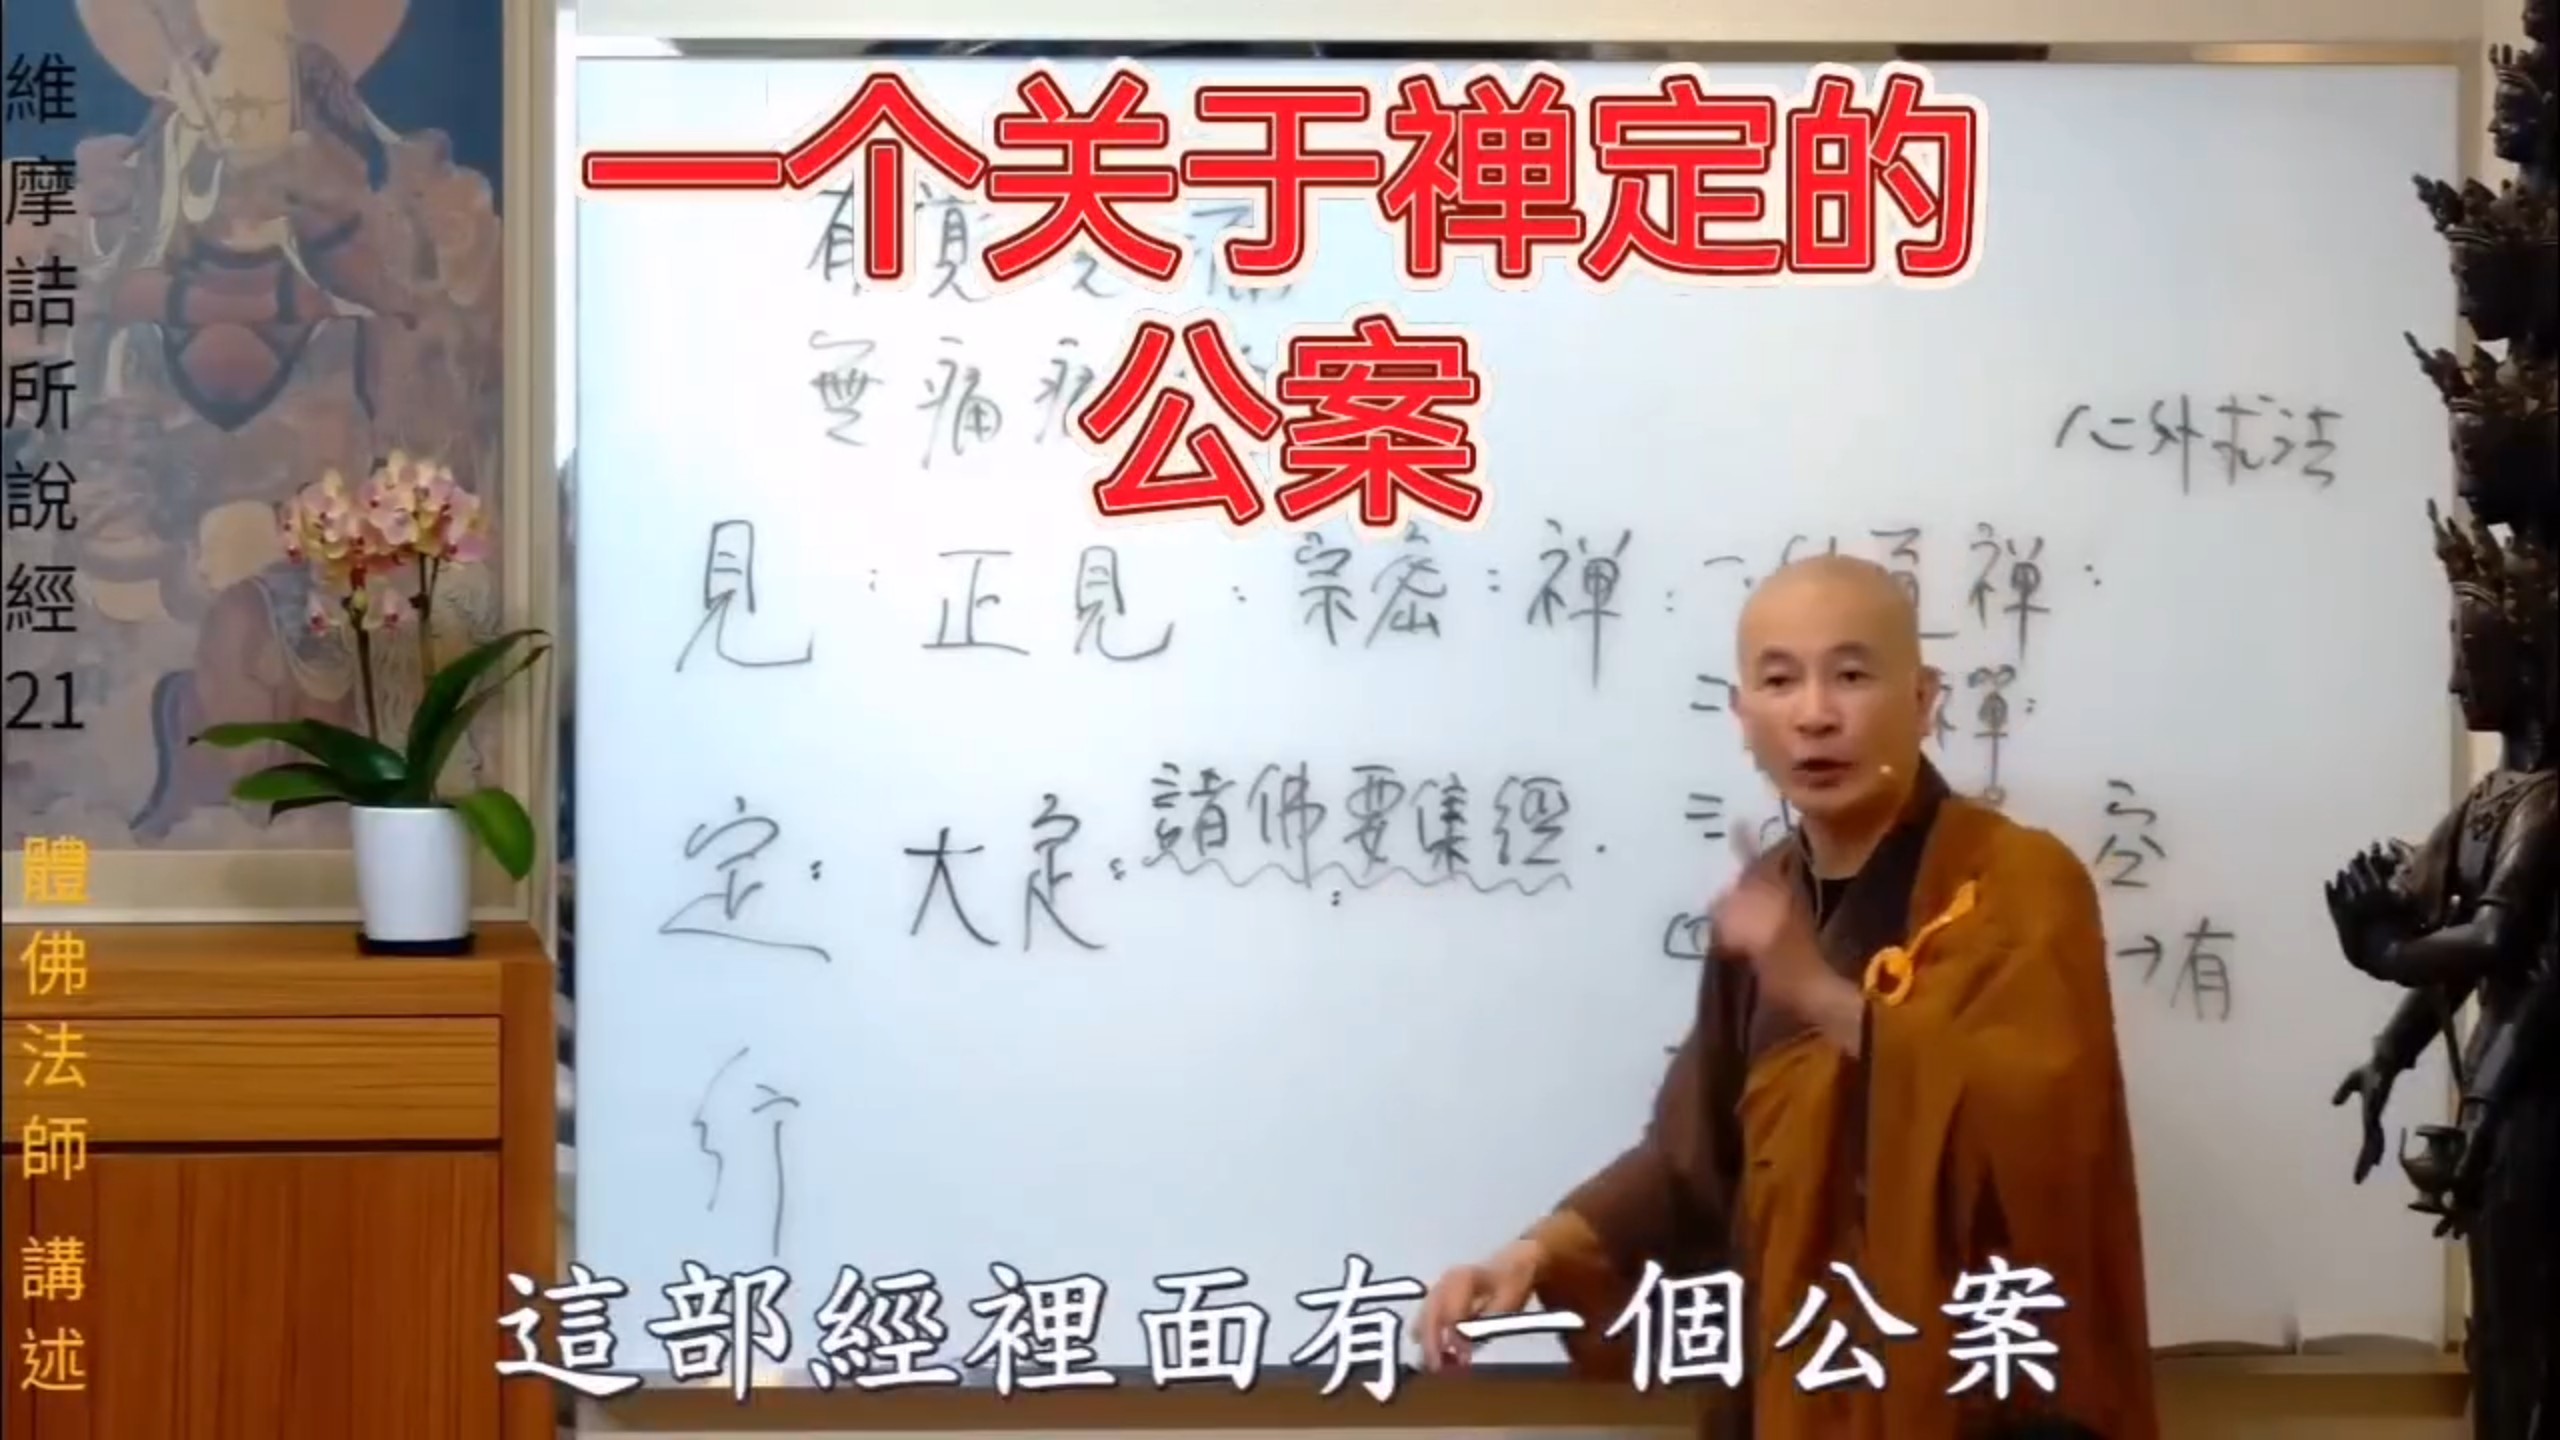 一个关于禅定的
公案
維摩詰所說經21
體佛法師 講述
心外求法
無痛
見：正見：宗密：禪：一 道禪：
二 禪：
定：大定：諸佛要集經．
三 空
四 →有
行
這部經裡面有一個公案